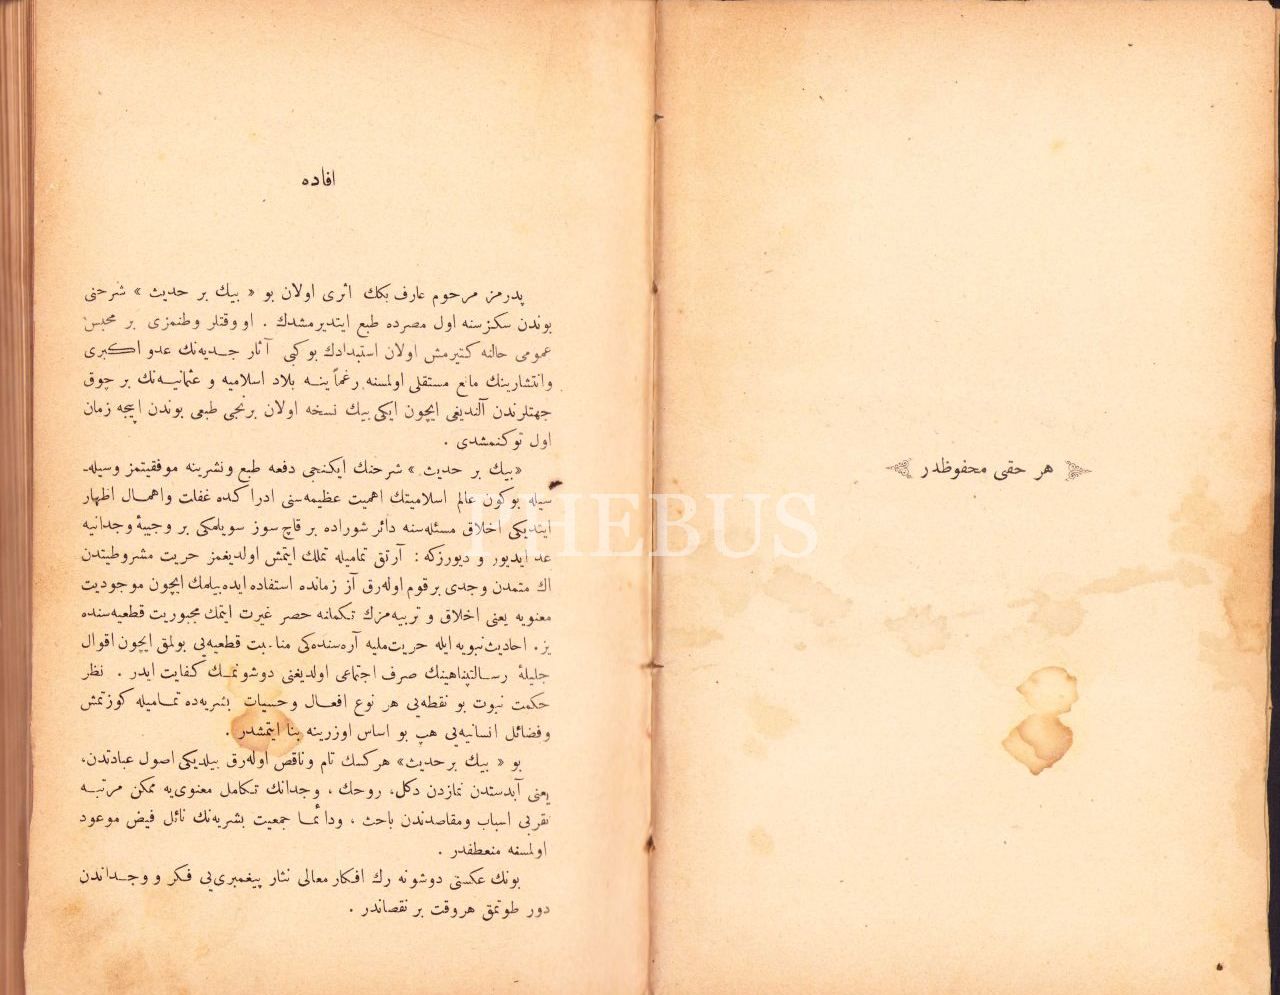 هر حقی محفوظدر
افاده
پدرمز مرحوم عارف بكك اثری اولان بو « بیك بر حدیث » شرحنی
بوندن سكز سنه اول مصرده طبع ایتدیرمشدك . او وقتلر وطنمزی بر محبس
عمومی حالنه كتیرمش اولان استبدادك بو كبی آثار جدیه‌نك عدو اكبری
وانتشارینك مانع مستقلی اولمسنه رغماً ینه بلاد اسلامیه و عثمانیه‌نك بر چوق
جهتلرندن آلندیغی ایچون ایكی بیك نسخه اولان برنجی طبعی بوندن اپیجه زمان
اول توكنمشدی .
«بیك بر حدیث » شرحنك ایكنجی دفعه طبع ونشرینه موفقیتمز وسیله‌
سیله بوكون عالم اسلامیتك اهمیت عظیمه‌سنی ادراكده غفلت واهمال اظهار
ایتدیكی اخلاق مسئله‌سنه دائر شوراده بر قاچ سوز سویلمكی بر وجیبهٔ وجدانیه
عد ایدیور و دیورزكه : آرتق تمامیله تملك ایتمش اولدیغمز حریت مشروطیتدن
اك متمدن وجدی بر قوم اوله‌رق آز زمانده استفاده ایده‌بیلمك ایچون موجودیت
معنویه یعنی اخلاق و تربیه‌مزك تكمانه حصر غیرت ایتمك مجبوریت قطعیه‌سنده
یز . احادیث نبویه ایله حریت ملیه آره‌سنده‌كی مناسبت قطعیه‌یی بولمق ایچون اقوال
جلیلهٔ رسالتپناهینك صرف اجتماعی اولدیغنی دوشونمك كفایت ایدر . نظر
حكمت نبوت بو نقطه‌یی هر نوع افعال وحسیات بشریه‌ده تمامیله كوزتمش
وفضائل انسانیه‌یی هپ بو اساس اوزرینه بنا ایتمشدر .
بو « بیك بر حدیث» هركسك تام وناقص اوله‌رق بیلدیكی اصول عبادتدن،
یعنی آبدستدن نمازدن دكل، روحك ، وجدانك تكامل معنوی‌یه ممكن مرتبه
تقربی اسباب ومقاصدندن باحث ، ودائما جمعیت بشریه‌نك نائل فیض موعود
اولمسنه منعطفدر .
بونك عكسنی دوشونه رك افكار معالی نثار پیغمبری‌یی فكر و وجداندن
دور طوتمق هروقت بر نقصاندر .
PHEBUS